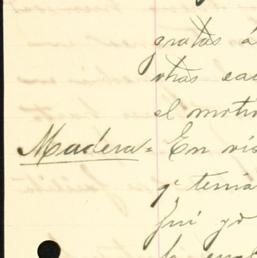 gratas á
otras cau
el motiv
Madera = En vis
qe tenia
fui yo